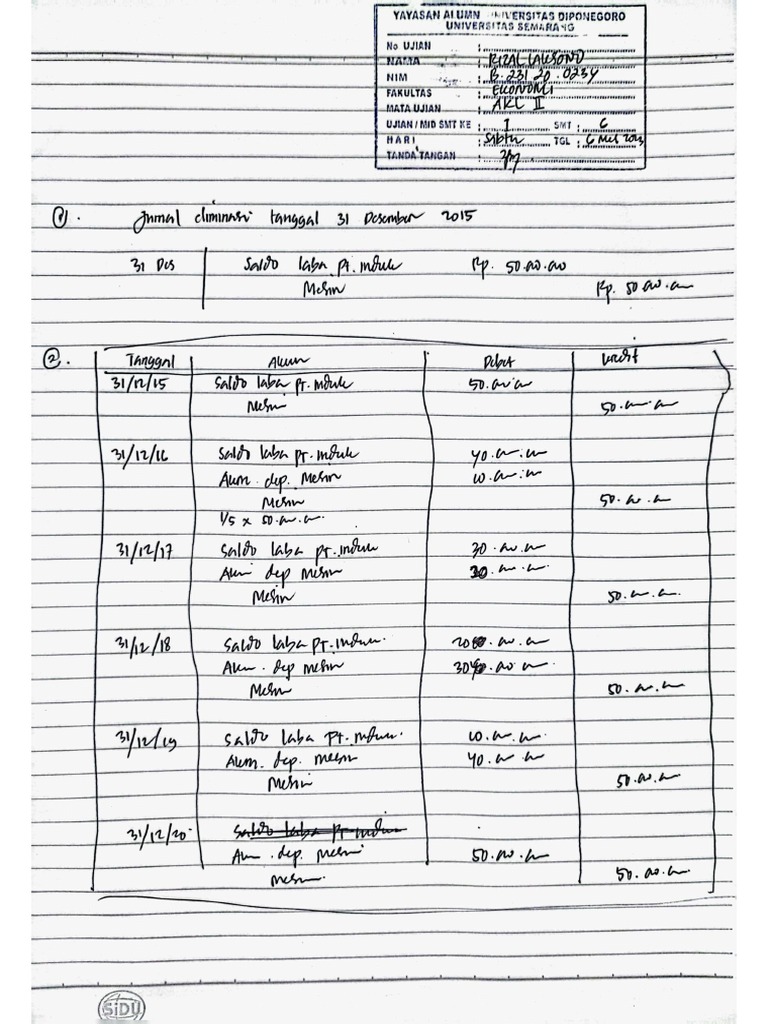 YAYASAN ALUMNI UNIVERSITAS DIPONEGORO
UNIVERSITAS SEMARANG
No UJIAN :
NAMA : RIZAL LAKSONO
NIM : B.231.20.0234
FAKULTAS : EKONOMI
MATA UJIAN : AKL II
UJIAN / MID SMT KE : I SMT : 6
HARI : Sabtu TGL : 6 Mei 2023
TANDA TANGAN :
1. Jurnal eliminasi tanggal 31 Desember 2015
31 Des Saldo laba pt. induk Rp. 50.00.00
Mesin Rp. 50.00.00
2. Tanggal Akun Debet kredit
31/12/15 Saldo laba pt. induk 50.00.00
Mesin 50.00.00
31/12/16 Saldo laba pt. induk 40.00.00
Akum. dep. Mesin 10.00.00
Mesin 50.00.00
1/5 x 50.00.00.
31/12/17 Saldo laba pt. induk 30.00.00
Akum dep Mesin 20.00.00
Mesin 50.00.00
31/12/18 Saldo laba pt. induk. 20.00.00
Akum. dep mesin 30.00.00
Mesin 50.00.00
31/12/19 Saldo laba pt. induk. 10.00.00
Akum. dep. mesin 40.00.00
Mesin 50.00.00
31/12/20. Saldo laba pt induk
Akum. dep. Mesin 50.00.00
Mesin. 50.00.00
SiDU